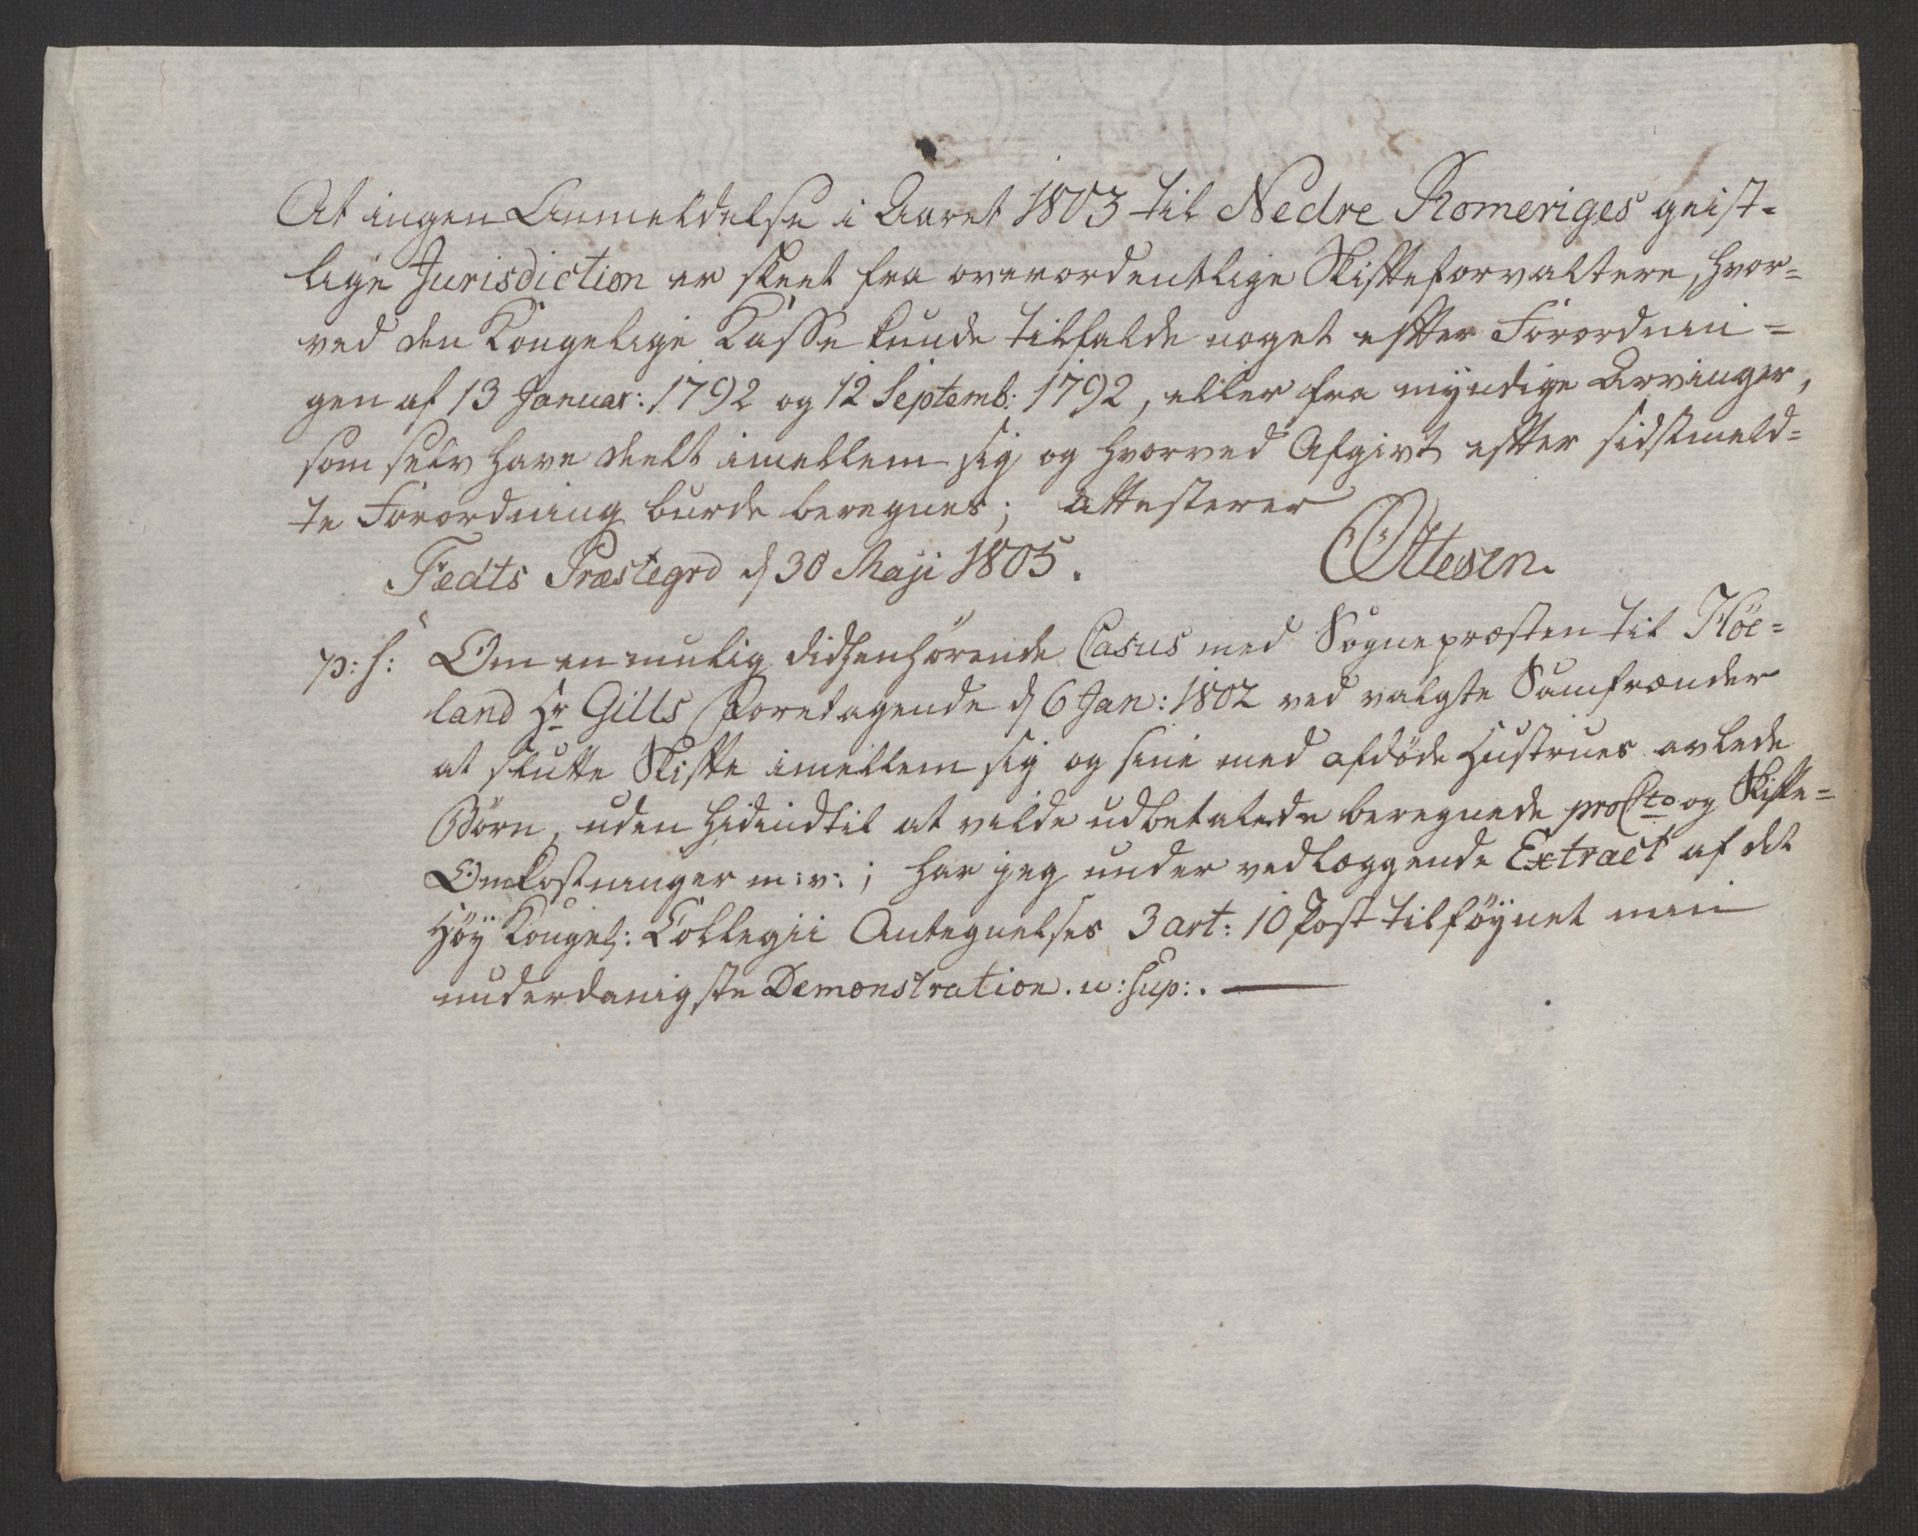 At ingen Anmeldelse i Aaret 1803 til Nedre Romeriges geist-
lige Jurisdiction er skeet fra overordentlige Skifteforvaltere, hvor-
ved den Kongelige Kasse kunde tilfalde noget efter Forordnin-
gen af 13 Januar: 1792 og 12 Septemb: 1792, eller fra myndige Arvinger,
som selv have deelt imellem sig og hvorved Afgivt efter sidstmeld-
te Forordning burde beregnes; attesterer
Fedts Præstegrd d 30 Maji 1805. Ottesen.
p: s: Om en mulig didhenhørende Casus med Sognepræsten til Høe-
land Hr Gills Foretagende d 6 Jan: 1802 ved valgte Samfrænder
at slutte Skifte imellem sig og sine med afdøde Hustrues avlede
Børn, uden hidindtil at vilde udbetale de beregnede pro Cto og Skifte-
Omkostninger m: v: ; har jeg under vedlæggende Extract af det
Høy Kongel: Collegii Antegnelses 3 art: 10 Post tilføynet min
underdanigste Demonstration. u: sup: .